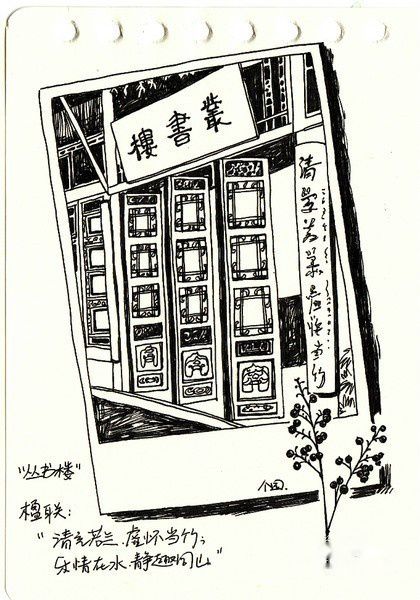 叢書樓
清氣若蘭虛懷當竹
个园.
“丛书楼”
楹联:
“清气若兰.虚怀当竹;
乐情在水.静趣同山”